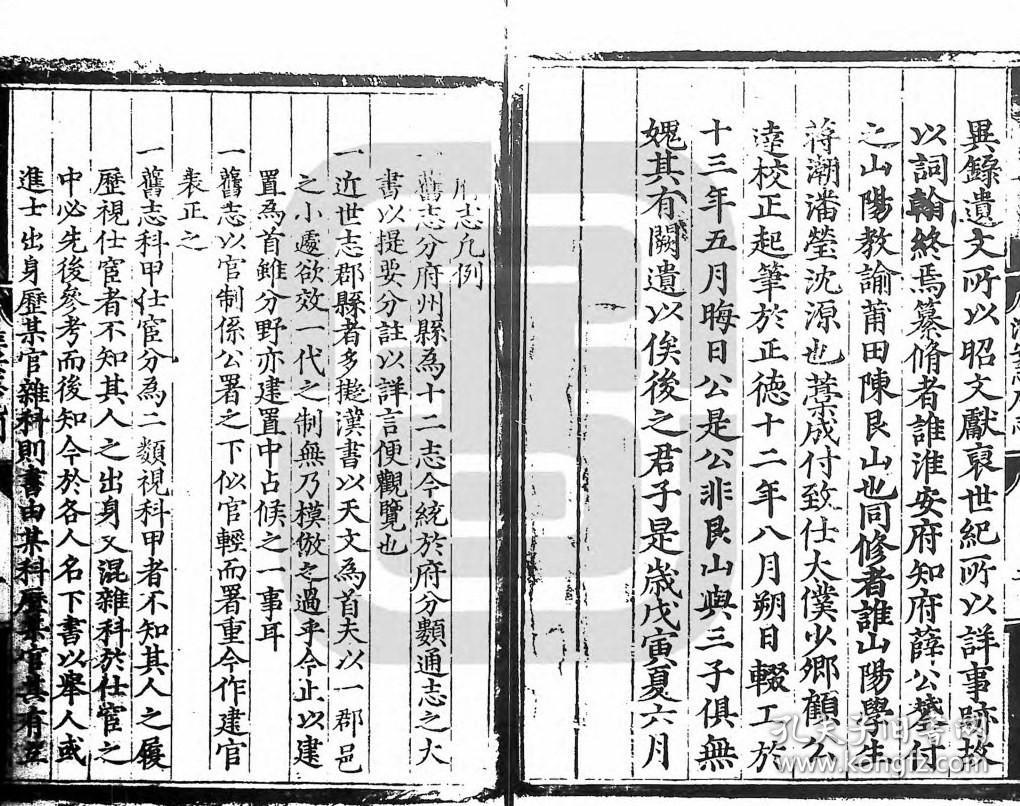 異錄遺文所以昭文獻裒世紀所以詳事跡故
以詞翰終焉纂脩者誰淮安府知府薛公鏊付
之山陽教諭莆田陳艮山也同修者誰山陽學生
蔣潮潘瑩沈源也藁成付致仕大僕少卿顧公
逵校正起筆於正德十二年八月朔日輟工於
十三年五月晦日公是公非艮山與三子俱無
媿其有闕遺以俟後之君子是歲戊寅夏六月
志凡例
一舊志分府州縣為十二志今統於府分類通志之大
書以提要分註以詳言便觀覽也
一近世志郡縣者多擬漢書以天文為首夫以一郡邑
之小處欲效一代之制無乃模倣之過乎今止以建
置為首雖分野亦建置中占候之一事耳
一舊志以官制係公署之下似官輕而署重今作建官
表正之
一舊志科甲仕宦分為二類視科甲者不知其人之履
歷視仕宦者不知其人之出身又混雜科於仕宦之
中必先後參考而後知今於各人名下書以舉人或
進士出身歷某官雜科則書由某科歷某官其有並
孔夫子旧书网
www.kongfz.com